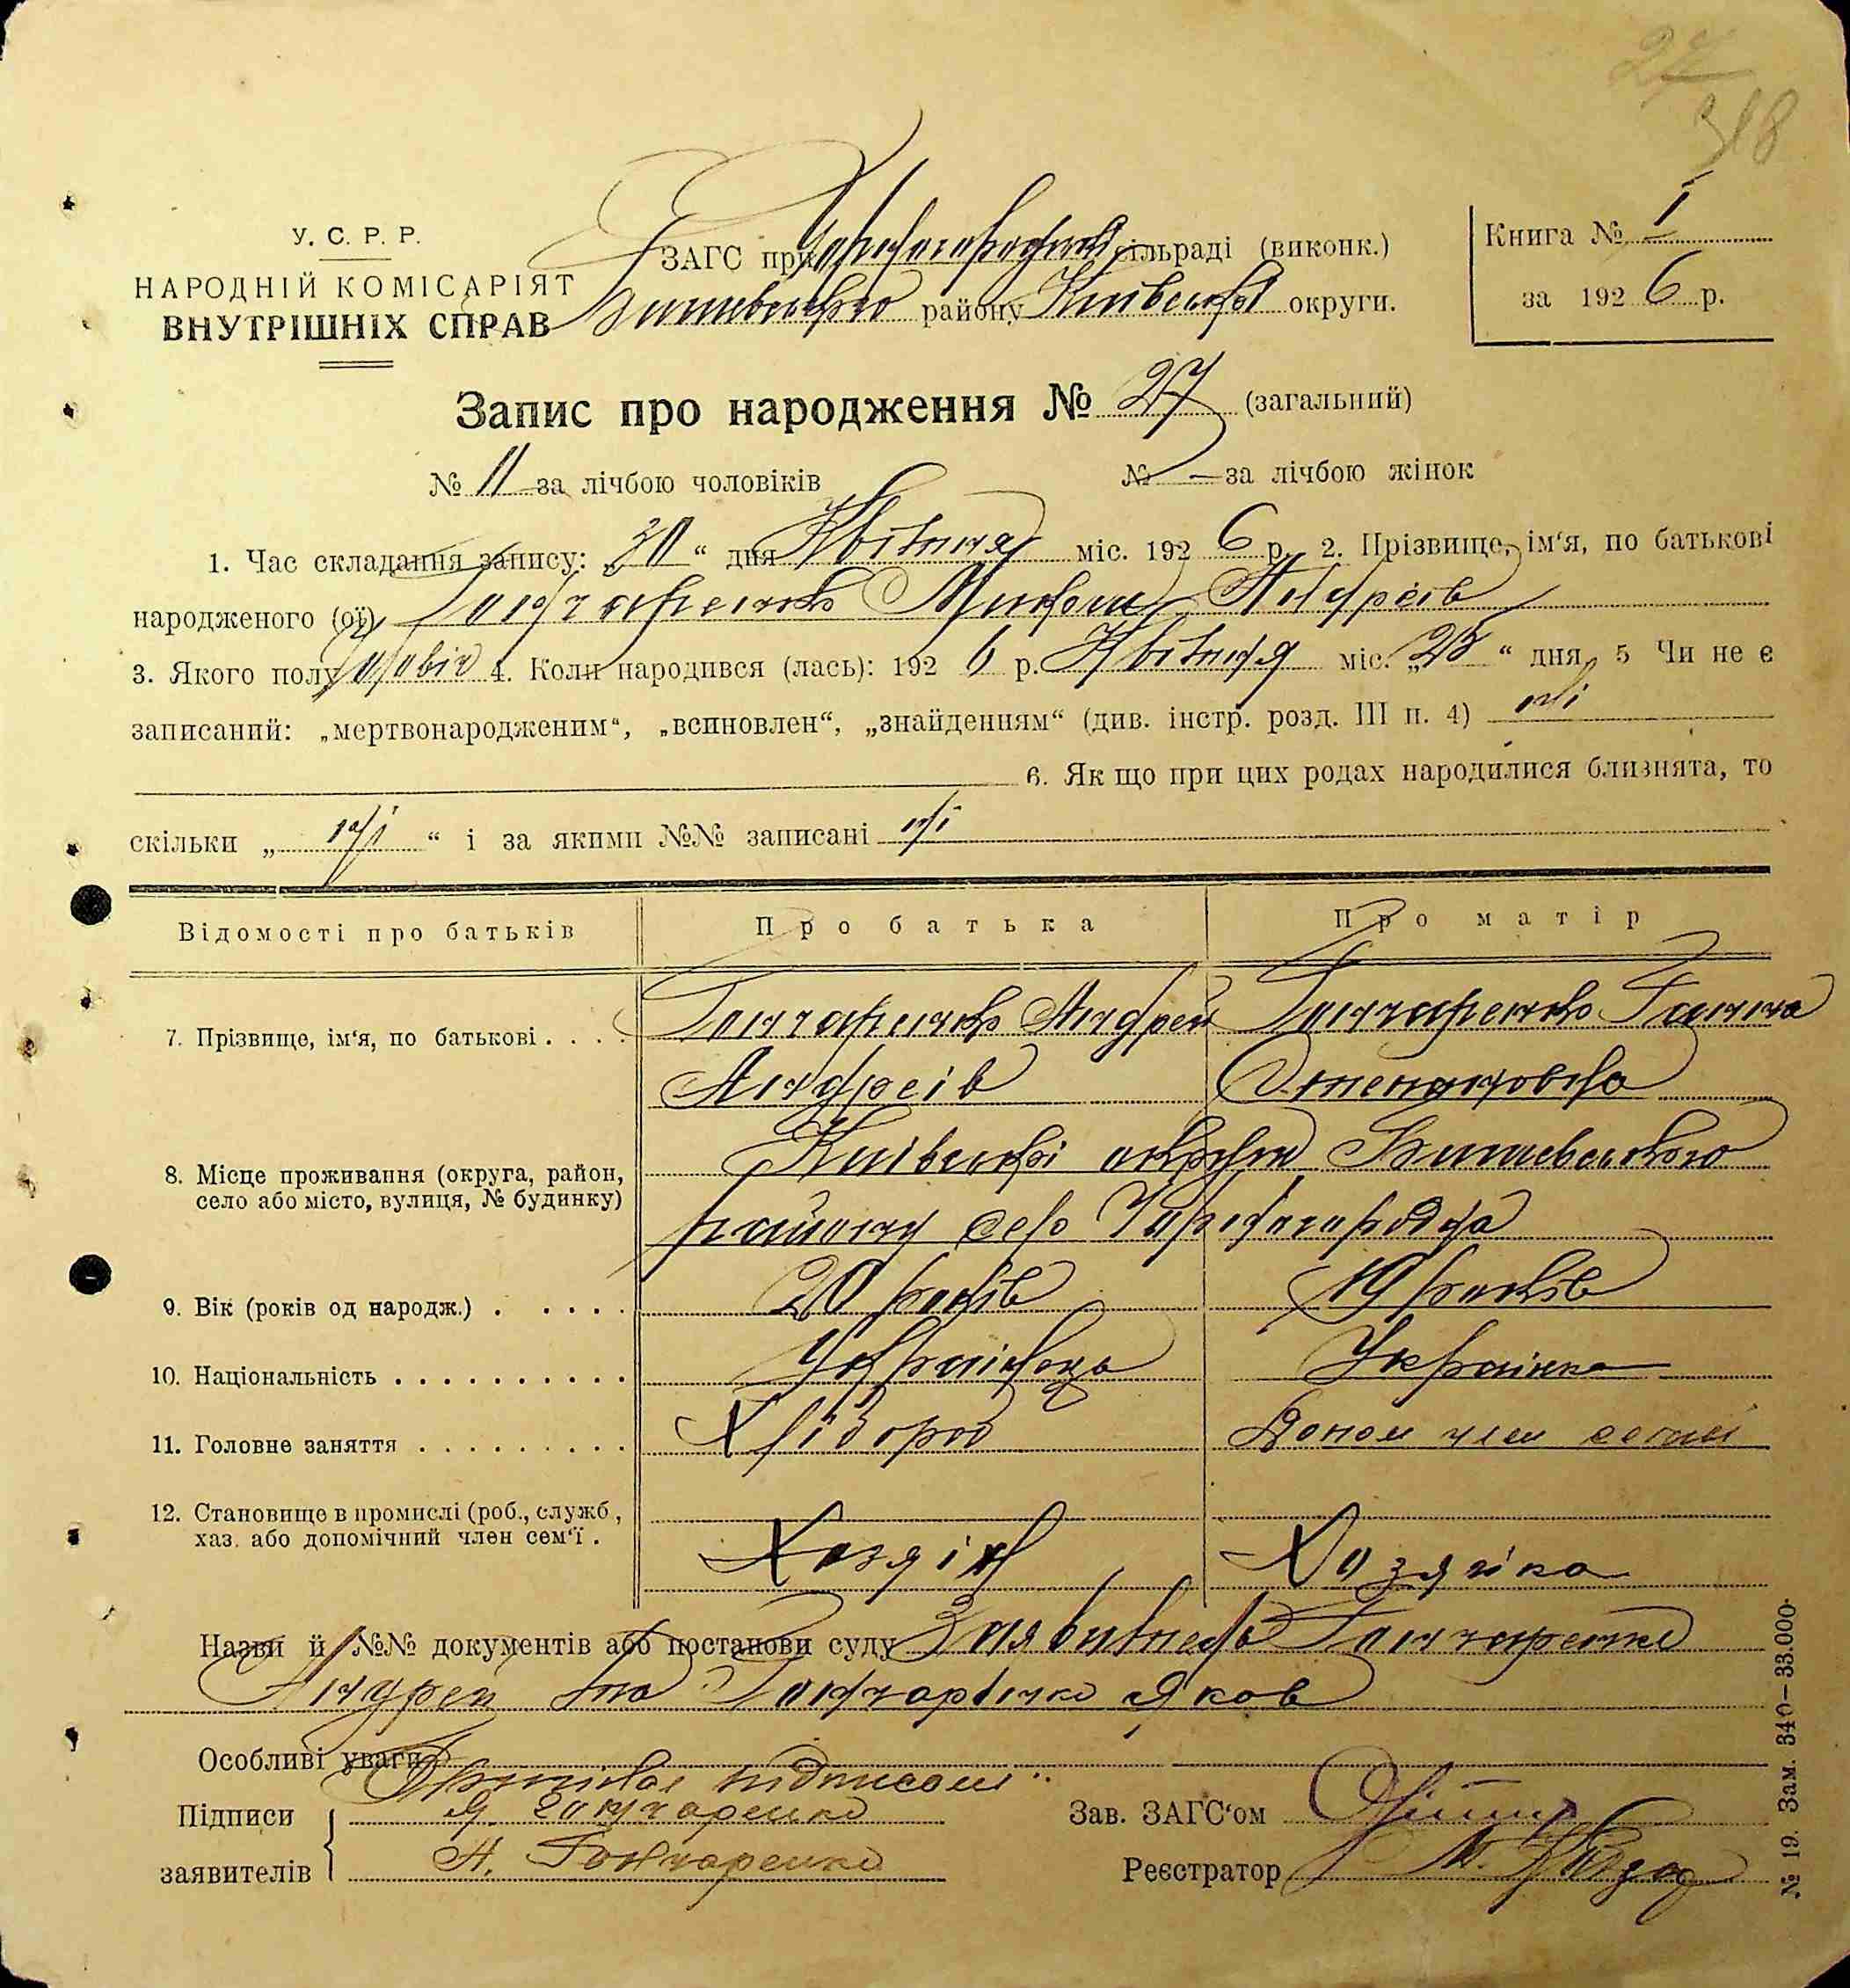 27
318
У. С. Р. Р.
НАРОДНІЙ КОМІСАРІЯТ
ВНУТРІШНІХ СПРАВ
ЗАГС при Чорногородській сільраді (виконк.)
Бишевського району Київської округи.
Книга № 1
за 1926 р.
Запис про народження № 27 (загальний)
№ 11 за лічбою чоловіків № — за лічбою жінок
1. Час складання запису: „30“ дня Квітня міс. 1926 р. 2. Прізвище, ім'я, по батькові
народженого (ої) Гончаренко Микола Андреїв
3. Якого полу чоловіч 4. Коли народився (лась): 1926 р. Квітня міс. „25“ дня, 5 Чи не є
записаний: „мертвонародженим“, „всиновлен“, „знайденням“ (див. інстр. розд. III п. 4) ні
6. Як що при цих родах народилися близнята, то
скільки „ ні “ і за якими №№ записані ні
Відомості про батьків Про батька Про матір
7. Прізвище, ім'я, по батькові . . . . Гончаренко Андрей Гончаренко Ганна
Андреїв
8. Місце проживання (округа, район, село або місто, вулиця, № будинку) Київської округи Бишевського
району село Чорногородка
9. Вік (років од народж.) . . . . . 20 років 19 років
10. Національність . . . . . . . . . . Українець Українка
11. Головне заняття . . . . . . . . . Хлібороб Допом член семьї
12. Становище в промислі (роб., служб,
хаз. або допомічний член сем'ї . Хозяїн Хозяйка
Назви й №№ документів або постанови суду Заявитель Гончаренко
Андрей та Гончаренко Яков
Особливі уваги
підписом
Підписи Я. Гончаренко Зав. ЗАГС'ом
заявителів А. Гончаренко Реєстратор М.
№ 19. Зам. 340—33.000.